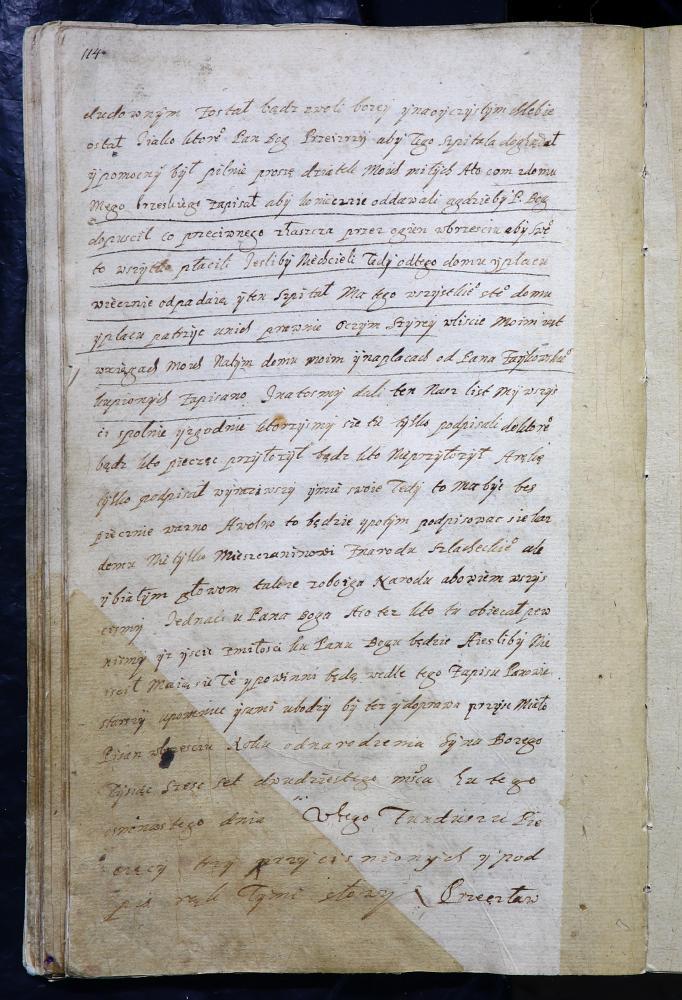 114
cudownym został bądz zwoli bozey ynaoyczystym chlebie
ostał Jiako ktore° Pan Bog Przeizrzy aby tego szpitala doględał
y pomocny był pilnie proszę dziatek Moich miłych Ato com zdomu
Mego brzeskiego zapisał aby koniecznie oddawali agdzieby P. Bog
dopuscił co przeciwnego złaszcza przez ogien wbrzesciu aby
to wszytko płacili Jesliby Niechcieli Tedy odtego domu yplacu
wiecznie odpadaią yten szpital Ma tego wszystkie° domu
yplacu patrzyc unich prawnie Oczym szyrzey wliscie Moim
wxięgach Moich Natym domu moim ynaplacach od Pana
kupionych zapisano Jnatosmy dali ten Nasz list My wszys
ci spolnie yzgodnie ktorzysmy sie tu tylko podpisali doktore°
bądz kto pieczęc przyłozył bądz kto Nieprzyłozył Aręką
tylko podpisał wyraziwszy ymie swoie Tedy to Ma byc bes
piecznie wazno Awolno to będzie ypotym podpisowac sie kaz
demu Nietylko Mieszczaninowi Znarodu szlacheckie° ale
ybiałym głowom takze zoboiga Narodu abowiem wszys
cysmy Jednaci u Pana Boga Ato tez kto tu obiecał pew
nismy yz ysci zmiłosci ku Panu Bogu będzie Aiesliby Nie
iscił Maią sie Te ypowinni będą wedle tego zapisu Panowie
starszy upomniec ysami ubodzy by tez ydoprawa przysc Miało
Pisan wbrzesciu Roku odnarodzenia Syna Bozego
Tysiąc szesc set dwudziestego mśca Lutego
osmnastego dnia Vtego Funduszu Pie
częcy trzy przycisnionych ypod
pis ręki Tymi słowy Przecław